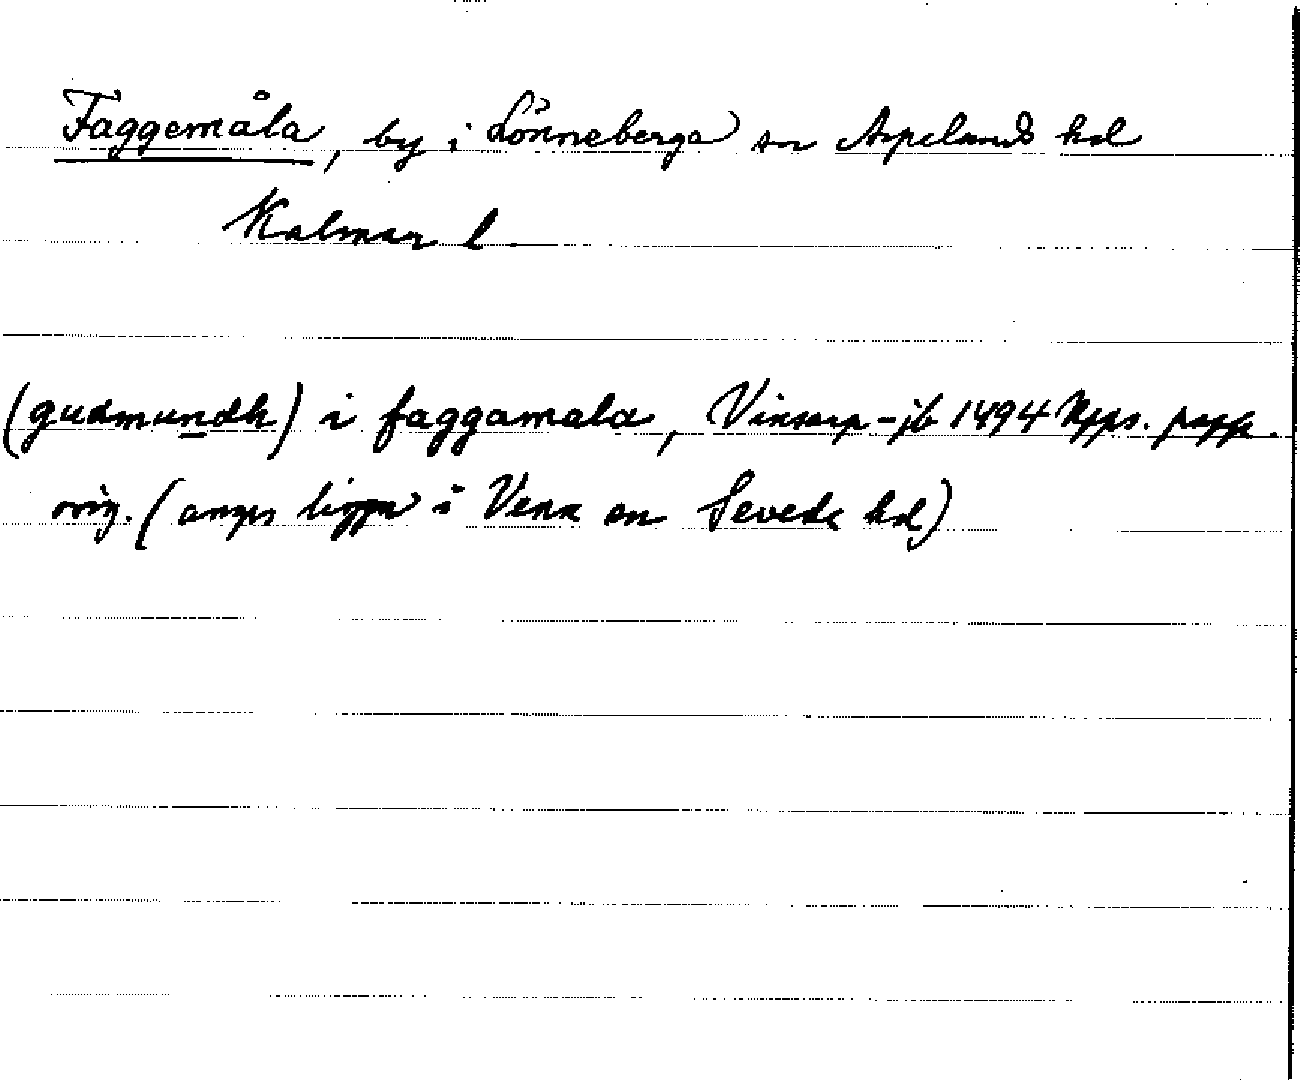 Faggemåla, by i Lönneberga sn Aspelands hd
Kalmar l
(gudmundh) i faggamala, Vinsarp-jb 1494 Upps. papp.
orig. (anges ligga i Vena sn Sevede hd)